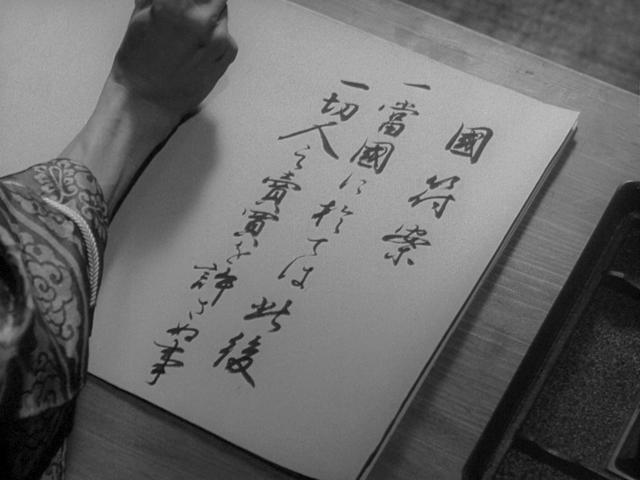 國符案
一當國に於ては此後
一切人之賣買を許さぬ事